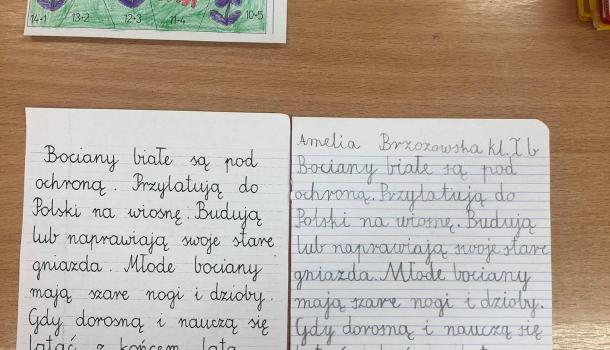 14-1 13-2 12-3 11-4 10-5
Bociany białe są pod
ochroną. Przylatują do
Polski na wiosnę. Budują
lub naprawiają swoje stare
gniazda. Młode bociany
mają szare nogi i dzioby.
Gdy dorosną i nauczą się
latać z końcem lata
Amelia Brzozowska kl. I b
Bociany białe są pod
ochroną. Przylatują do
Polski na wiosnę. Budują
lub naprawiają swoje stare
gniazda. Młode bociany
mają szare nogi i dzioby.
Gdy dorosną i nauczą się